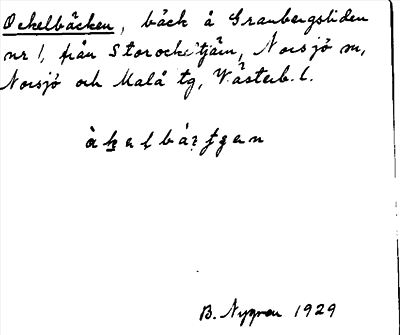 Ockelbäcken, bäck å Granbergsliden
nr 1, från Storockeltjärn, Norsjö sn,
Norsjö och Malå tg, Västerb. l.
B. Nygren 1929